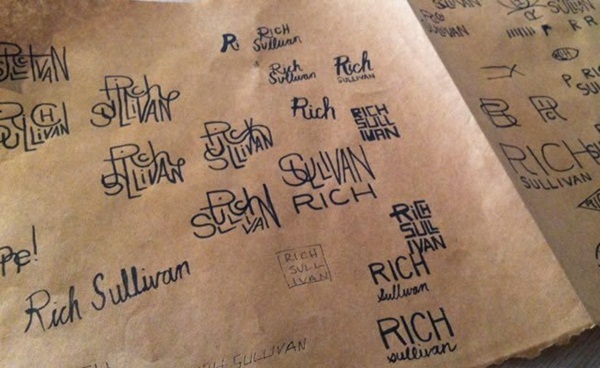 RICH
Sullivan
Rich
Sullivan
Rich
SULLIVAN
Rich
SULLIVAN
RICH
SULLIVAN
Rich
SULLIVAN
Rich
RICH
SULL
IVAN
Rich
SULLIVAN
Rich
SULLIVAN
SULLIVAN
RICH
RICH
SULLIVAN
RICH
SULL
IVAN
RICH
SULL
IVAN
Rich Sullivan
RICH
Sullivan
RICH
Sullivan
SULLIVAN